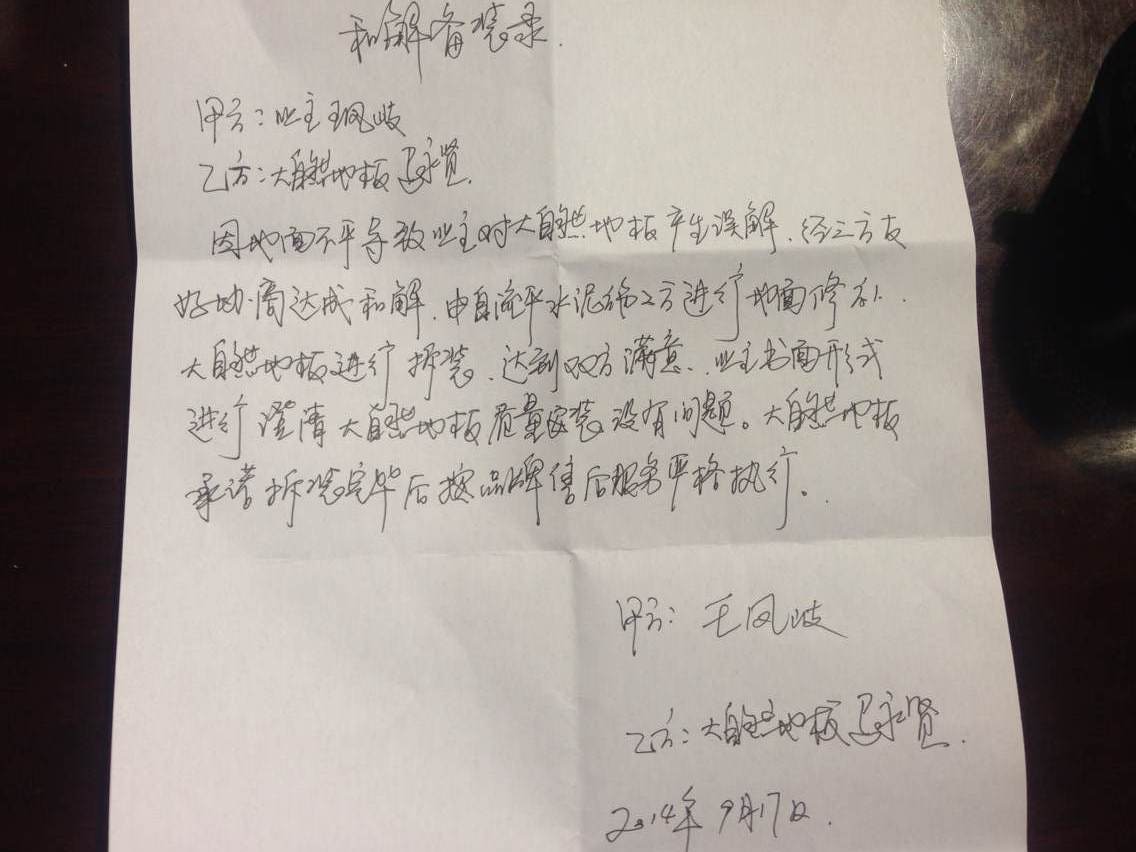 和解备忘录.
甲方：业主王凤岐
乙方：大自然地板 马永贤.
因地面不平导致业主对大自然地板产生误解、经三方友
好协商达成和解、由自流平水泥 方进行地面修补.
大自然地板进行拆装、达到双方满意、业主书面形式
进行澄清大自然地板质量安装没有问题。大自然地板
承诺拆装完毕后按品牌售后服务严格执行。
甲方：王凤岐
乙方：大自然地板 马永贤.
2014年9月17日.